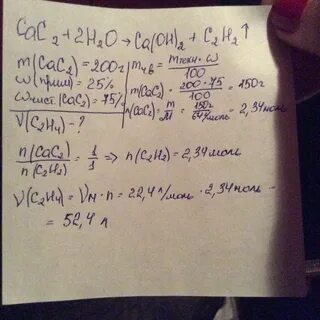 CaC₂ + 2H₂O → Ca(OH)₂ + C₂H₂↑
m(CaC₂) = 200г
w(прим) = 25%
wчист(CaC₂) = 75%
V(C₂H₄) - ?
mч.в = mтехн·w / 100
m(CaC₂) = 200·75 / 100 = 150г
n(CaC₂) = m / M = 150г / 64г/моль = 2,34моль
n(CaC₂) / n(C₂H₂) = 1 / 1 => n(C₂H₂) = 2,34моль
V(C₂H₄) = Vм · n = 22,4 л/моль · 2,34моль =
= 52,4 л